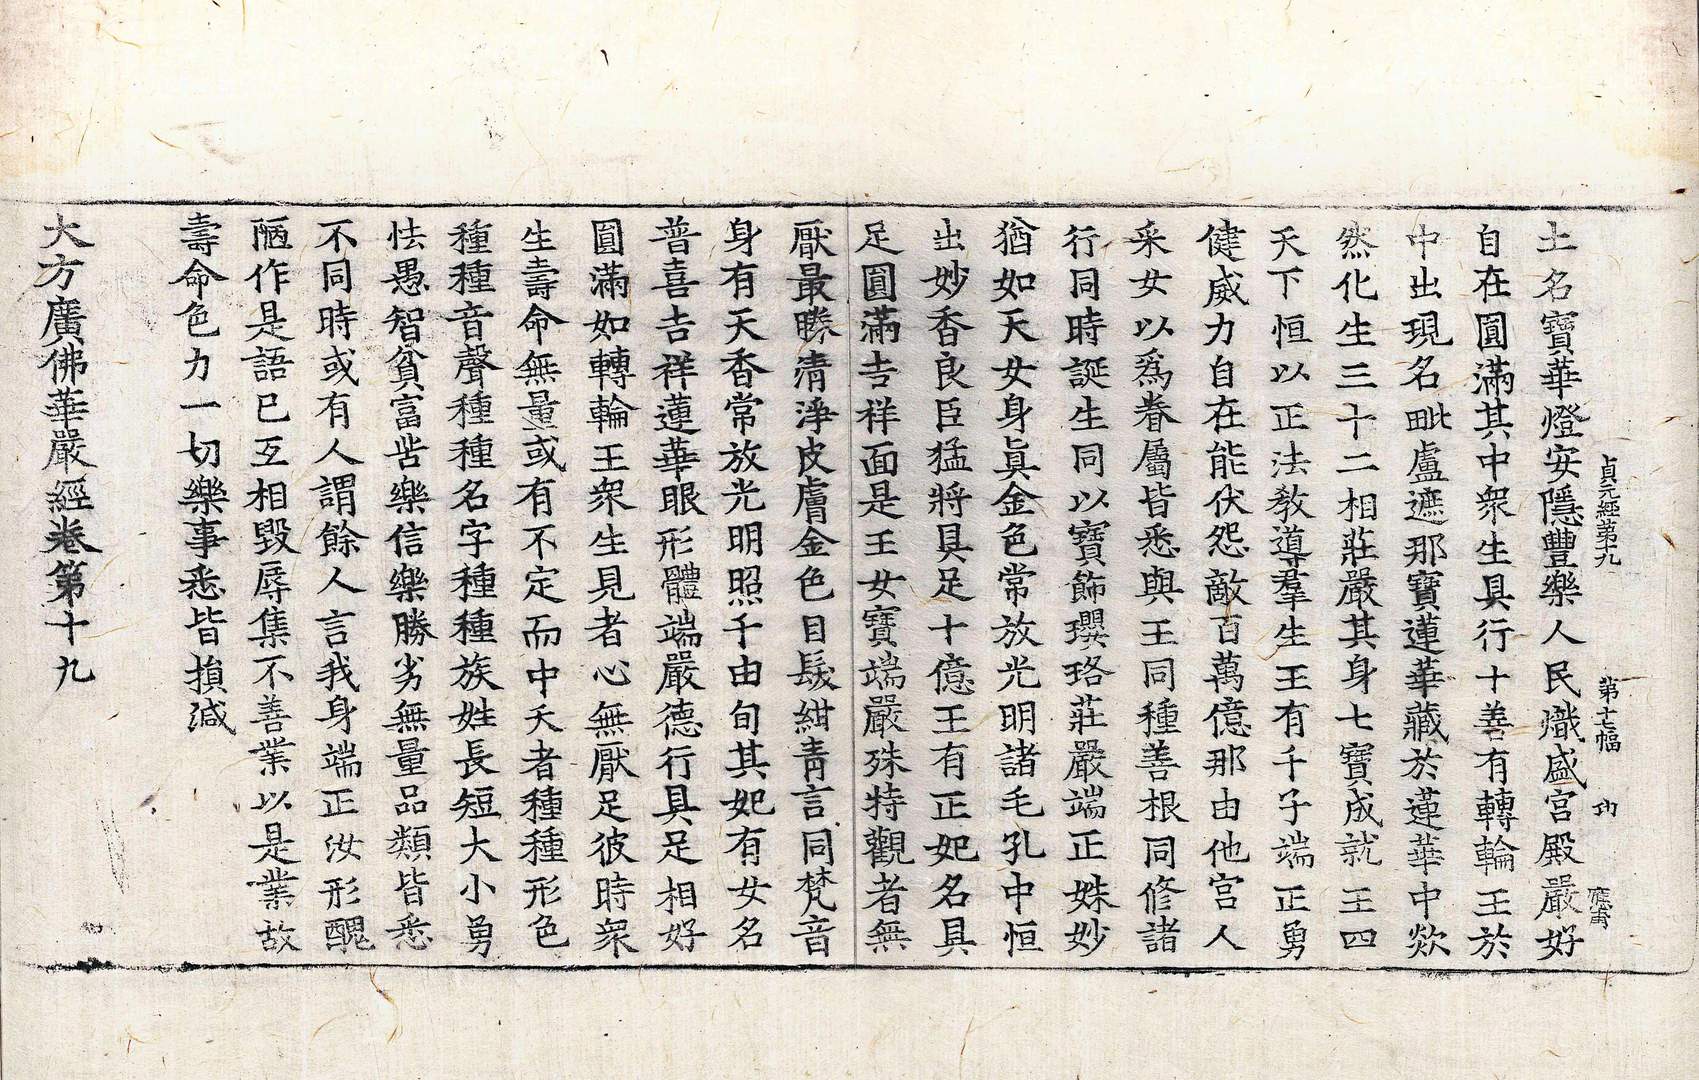 貞元經第十九　第十七幅
土名寶華燈安隱豐樂人民熾盛宮殿嚴好
自在圓滿其中衆生具行十善有轉輪王於
中出現名毗盧遮那寶蓮華藏於蓮華中欻
然化生三十二相莊嚴其身七寶成就王四
天下恒以正法教導羣生王有千子端正勇
健威力自在能伏怨敵百萬億那由他宮人
采女以爲眷屬皆悉與王同種善根同修諸
行同時誕生同以寶飾瓔珞莊嚴端正姝妙
猶如天女身眞金色常放光明諸毛孔中恒
出妙香良臣猛將具足十億王有正妃名具
足圓滿吉祥面是王女寶端嚴殊特觀者無
厭最勝清淨皮膚金色目髮紺靑言同梵音
身有天香常放光明照千由旬其妃有女名
普喜吉祥蓮華眼形體端嚴德行具足相好
圓滿如轉輪王衆生見者心無厭足彼時衆
生壽命無量或有不定而中夭者種種形色
種種音聲種種名字種種族姓長短大小勇
怯愚智貧富苦樂信樂勝劣無量品類皆悉
不同時或有人謂餘人言我身端正汝形醜
陋作是語已互相毀辱集不善業以是業故
壽命色力一切樂事悉皆損減
大方廣佛華嚴經卷第十九